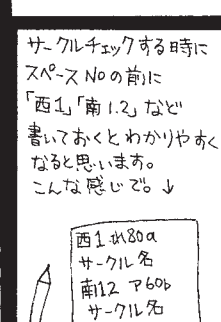 サークルチェックする時に
スペースNoの前に
「西1」「南1.2」など
書いておくとわかりやすく
なると思います。
こんな感じで。↓
西1 れ80a
サークル名
南12 ア60b
サークル名